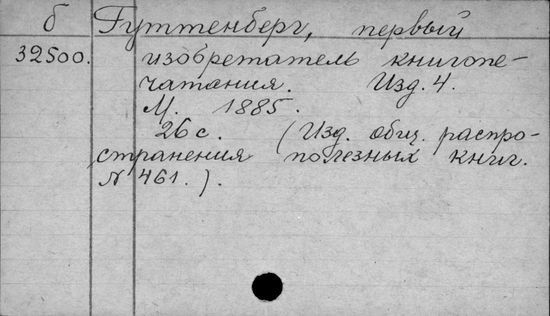 б Гуттенберг, первый
32500. изобретатель книгопе-
чатания. Изд. 4.
М. 1885.
26 с. (Изд. общ. распро-
странения полезных книг.
N 461.).